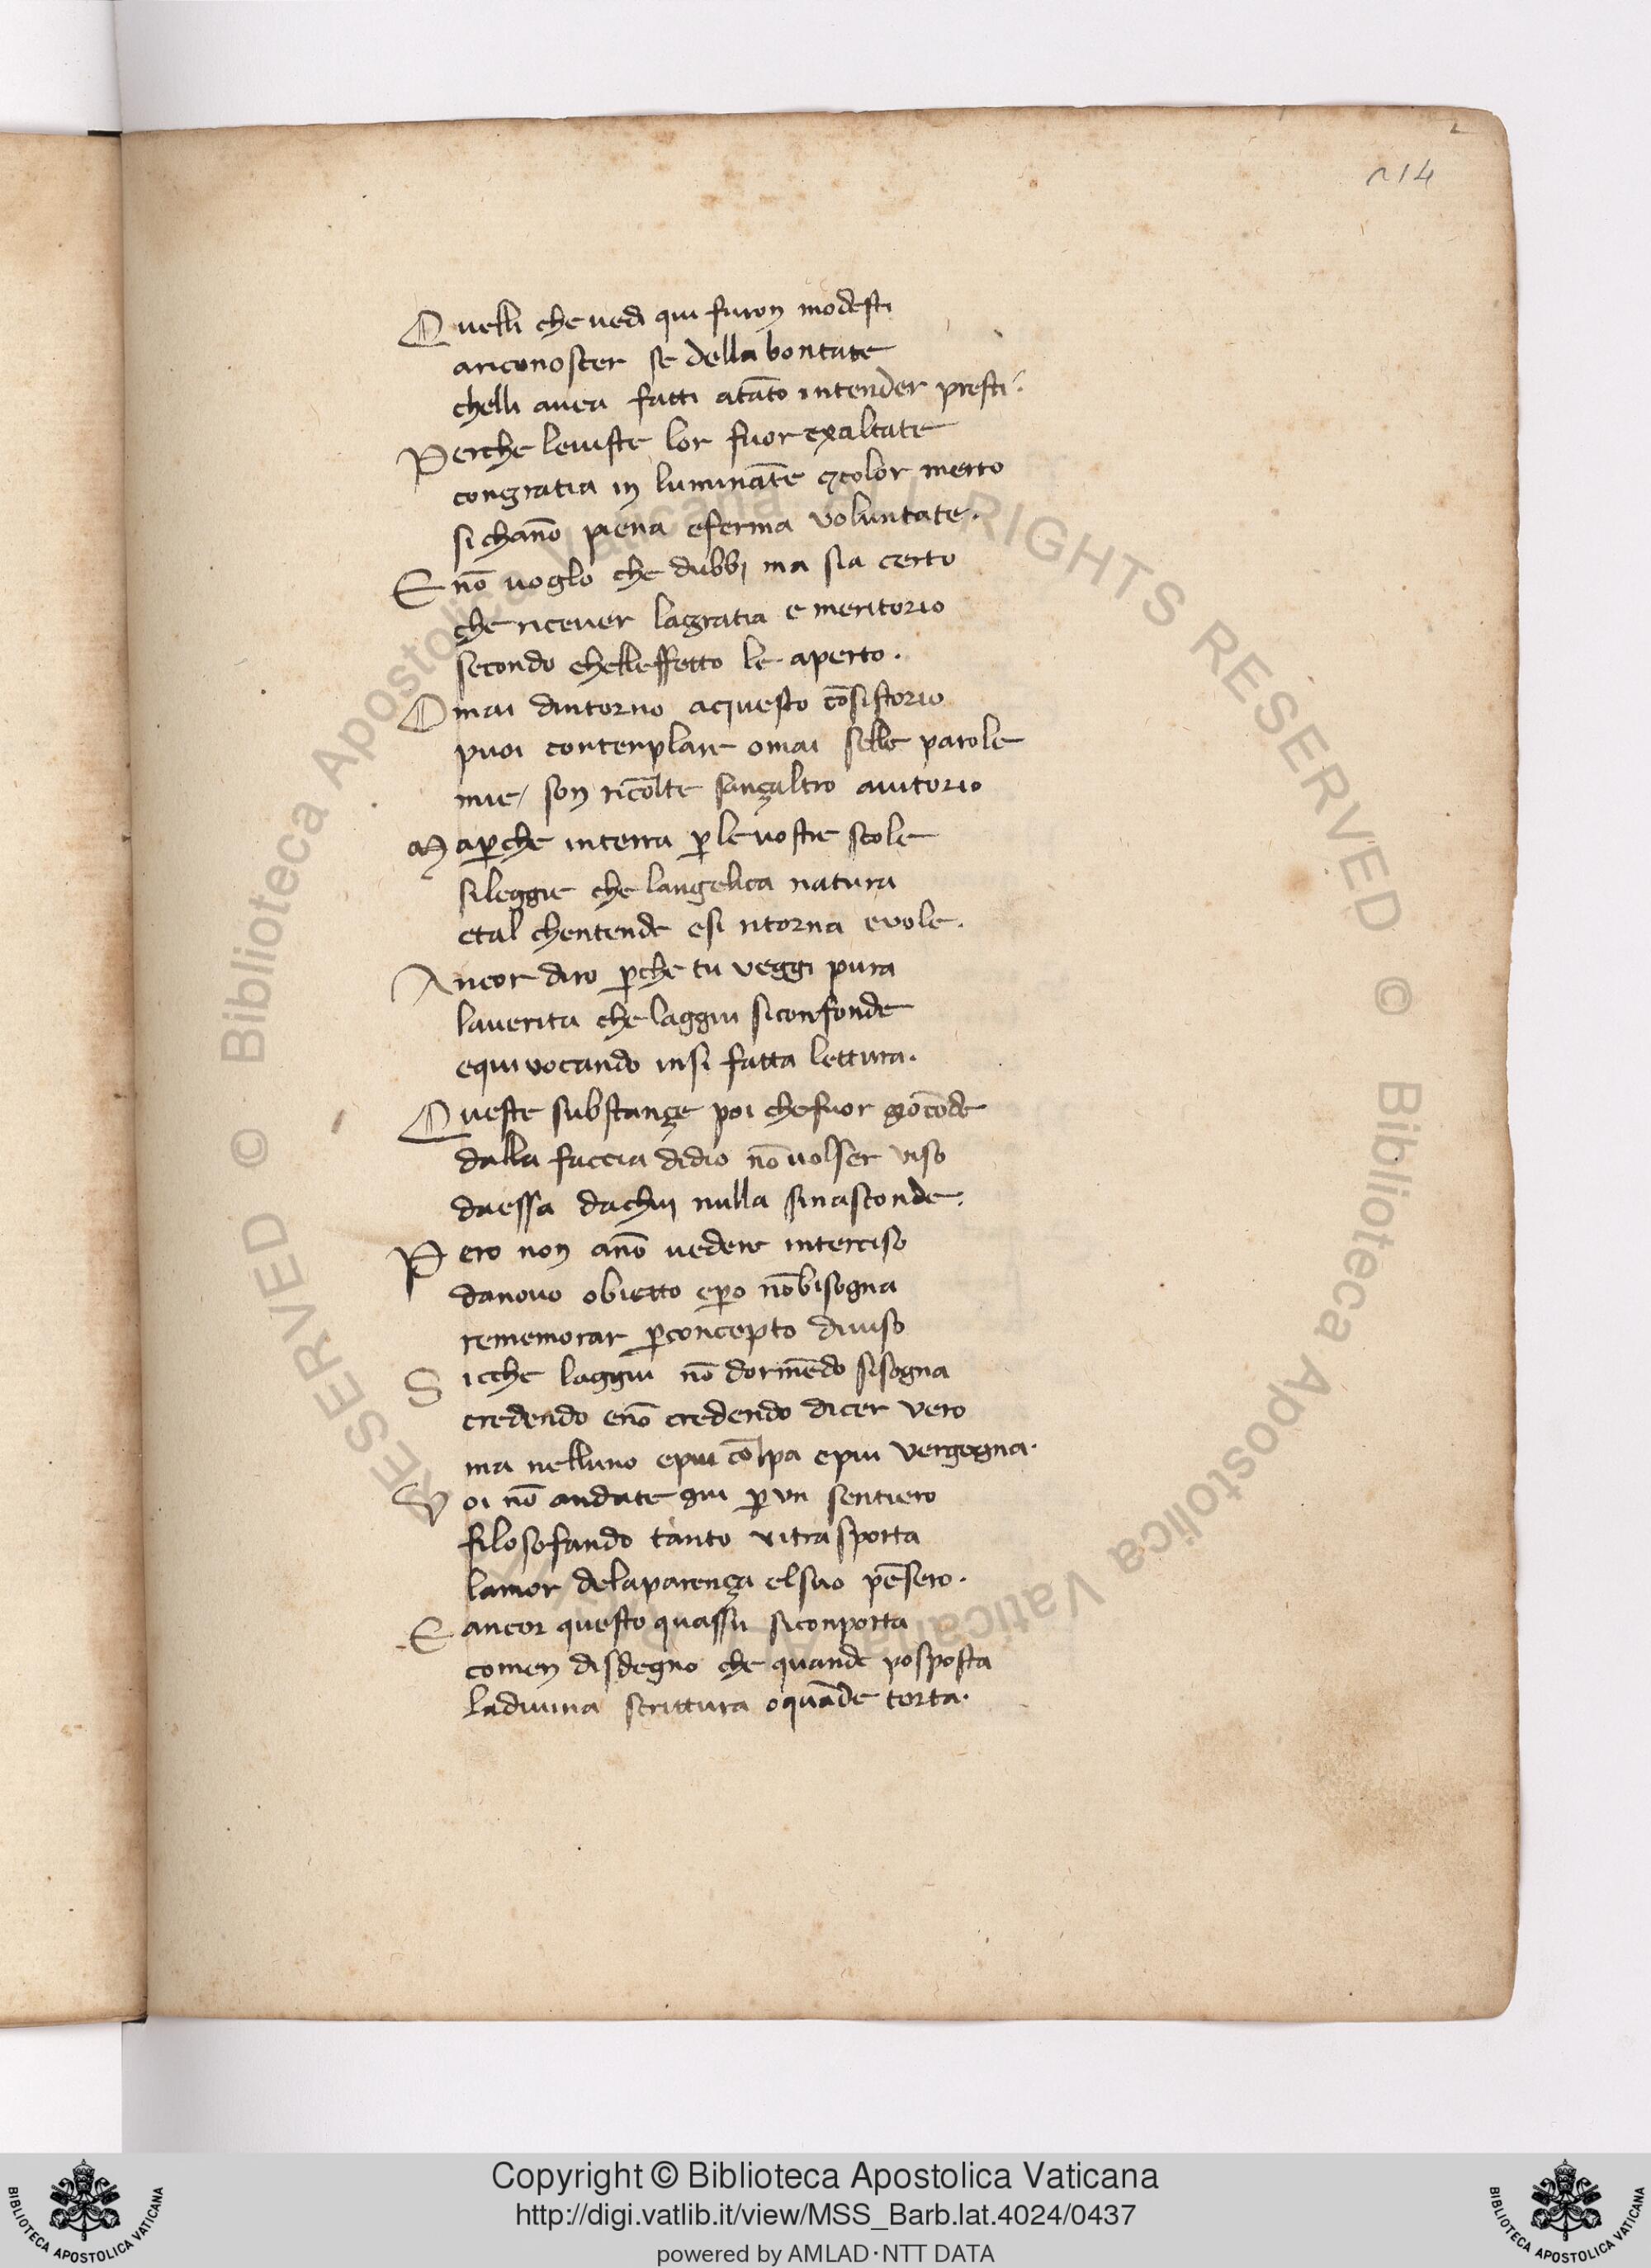 214
Quelli che uedi qui furon modesti
ariconoscer se della bontate
chelli auea fatti atāto intender presti.
Perche leuiste lor fuor exaltate
congratia in lumināte ⁊color merto
si chāno piena eferma voluntate.
E nō uoglo che dubbj ma sia certo
che riceuer lagratia e meritorio
secondo chelleffetto le aperto.
Omai dintorno aquesto cōsistorio
puoi contemplare omai selle parole
mie/ son ricōlte sançaltro aiutorio
Ma ꝑche interra ꝑ leuostre scole
sileggie che langelica natura
etal chentende esi ritorna evole.
Ancor diro ꝑche tu veggi pura
lauerita che laggiu siconfonde
equivocando insi fatta lettura.
Queste substançe poi chefuor giocōde
dalla faccia didio nō uolser viso
daessa dachuj nulla sinasconde.
Pero non āno uedere interciso
danouo obietto eꝑo nōbisogna
rememorar ꝑconcepto diuiso
Sicche laggiu nō dormēdo sisogna
credendo enō credendo dicer vero
ma nelluno epiu cōlpa epiu vergogna.
Voi nō andate giu ꝑ vn sentiero
filosofando tanto vitrasporta
lamor delaparença elsuo pēsero.
E ancor questo quassu siconporta
comen disdegno che quande posposta
ladiuina scrittura oquāde torta.
© Biblioteca Apostolica Vaticana ALL RIGHTS RESERVED © Biblioteca Apostolica Vaticana ALL RIGHTS RESERVED
Copyright © Biblioteca Apostolica Vaticana
http://digi.vatlib.it/view/MSS_Barb.lat.4024/0437
powered by AMLAD·NTT DATA
BIBLIOTECA APOSTOLICA VATICANA
BIBLIOTECA APOSTOLICA VATICANA